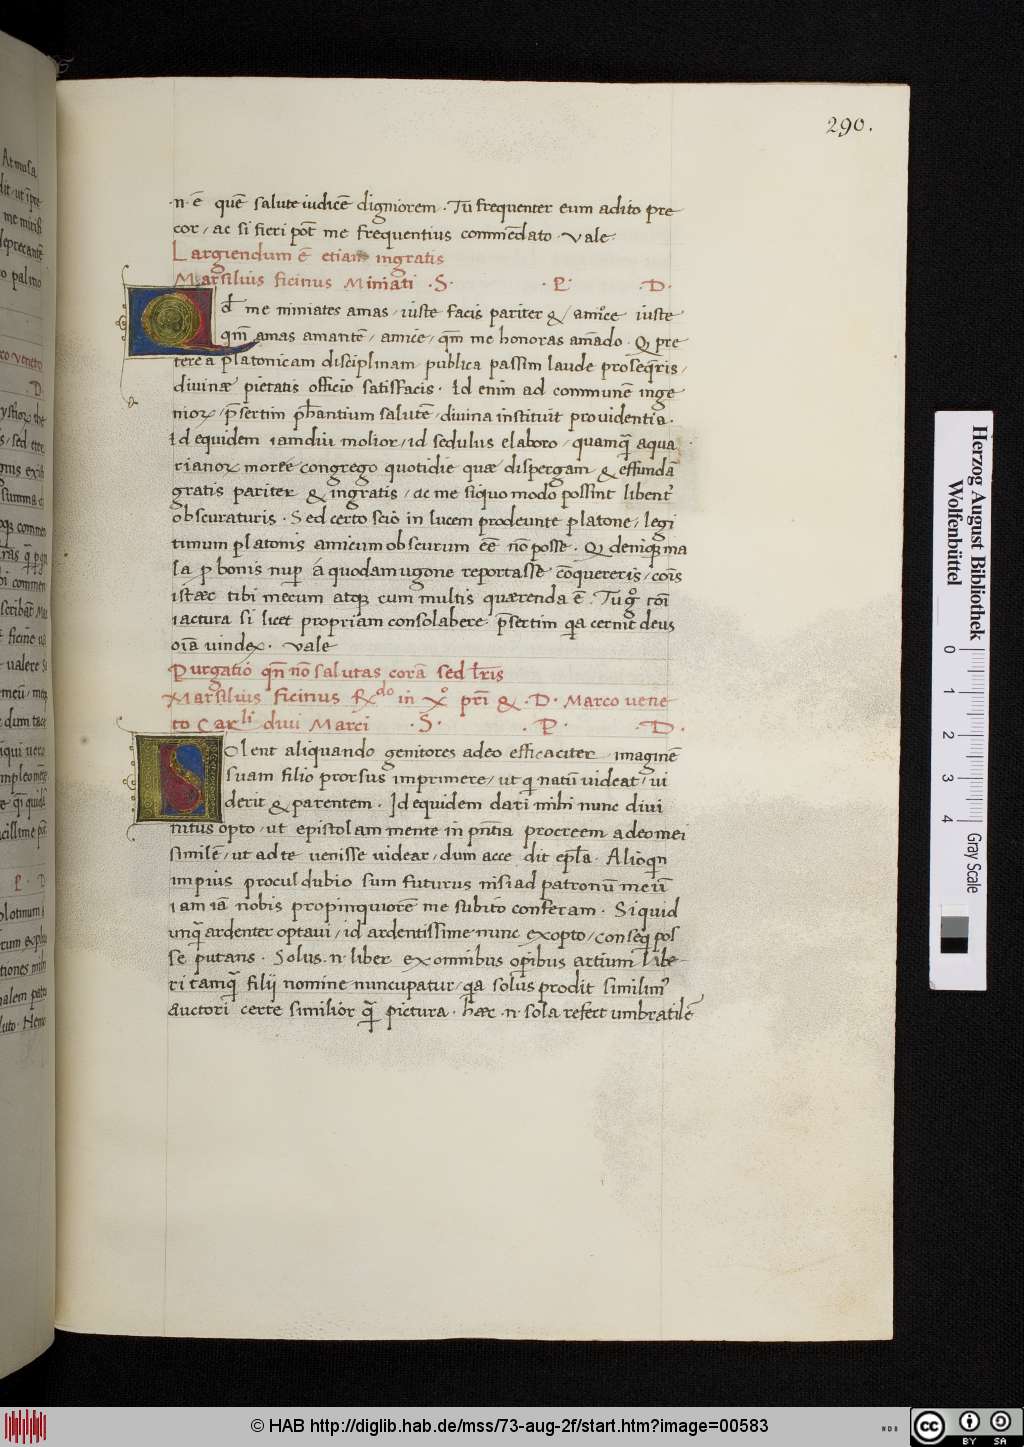 290.
.n. ē quē salute iudicē digniorem. Tū frequenter eum adito pre
cor, ac si fieri pōt me frequentius commēdato. Vale.
Largiendum ē etiam ingratis
Marsilius ficinus Miniati .S. .P. .D.
Qđ me miniates amas, iuste facis pariter & amice iuste
qm̄ amas amantē, amice, qm̄ me honoras amādo. Q pre
terea platonicam disciplinam publica passim laude proseq̄ris,
divinae pietatis officio satisfacis. Id enim ad communē inge
nioꝝ, p̄sertim ph̄antium salutē, divina instituit providentia.
Id equidem iamdiu molior, id sedulus elaboro, quamq̄ aqua
rianoꝝ more congrego quotidie quae dispergam & effundā
gratis pariter & ingratis, ac me siquo modo possint libent᷒
obscuraturis. Sed certo scio in lucem prodeunte platone, legi
timum platonis amicum obscurum eē nō posse. Q deniqꝫ ma
la ꝑ bonis nuꝑ a quodam ugone reportasse cōquereris, cōis
istaec tibi mecum atqꝫ cum multis quaerenda ē. Tu gͦ cōi
iactura si licet propriam consolabere p̄sertim q̄a cernit deus
oīa vindex. vale
Purgatio qn̄ nō salutas corā sed lr̄is
Marsilius ficinus Rxdo in Xͦ pr̄i & .D. Marco vene
to Carli divi Marci .S. .P. .D.
Solent aliquando genitores adeo efficaciter imaginē
suam filio prorsus imprimere, ut q natū videat, vi
derit & parentem. Id equidem dari mihi nunc divi
nitus opto, ut epistolam mente in pn̄tia procreem adeo mei
similē, ut ad te venisse videar, dum acce dit epl̄a. Alioqn
impius procul dubio sum futurus nisi ad patronū meū
iam iā nobis propinquiorē me subito conferam. Siquid
unq̄ ardenter optavi, id ardentissime nunc exopto, conseq pos
se putans. Solus .n. liber ex omnibus oꝑibus artium libe-
ri tamq̄ filii nomine nuncupatur, qa solus prodit simillim᷒
auctori certe similior q̄ pictura. haec .n. sola refert umbratilē
Herzog August Bibliothek
Wolfenbüttel
0 1 2 3 4
Gray Scale
© HAB http://diglib.hab.de/mss/73-aug-2f/start.htm?image=00583
WDB
cc BY SA